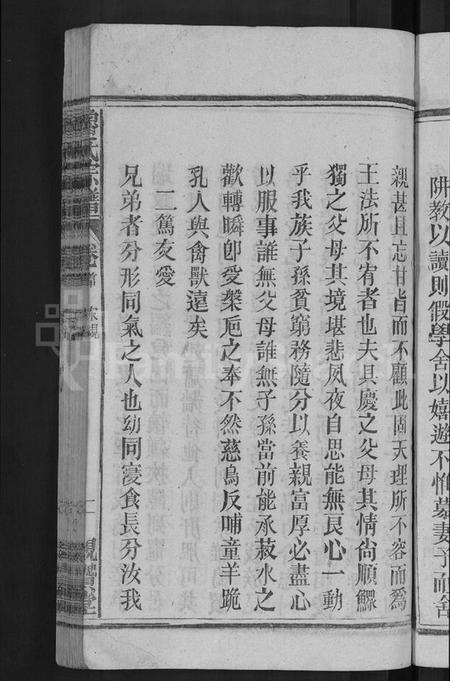 阱教以讀則假學舍以嬉遊不惟慕妻子而舍
親甚且忘甘旨而不顧此固天理所不容而爲
王法所不宥者也夫具慶之父母其情尙順鰥
獨之父母其境堪悲夙夜自思能無良心一動
乎我族子孫貧窮務隨分以養親富厚必盡心
以服事誰無父母誰無子孫當前能承菽水之
歡轉瞬卽愛桊巵之奉不然慈烏反哺童羊跪
乳人與禽獸遠矣
二篤友愛
兄弟者分形同氣之人也幼同寢食長分汝我
氏宗譜
卷首
家規
二
親
堂